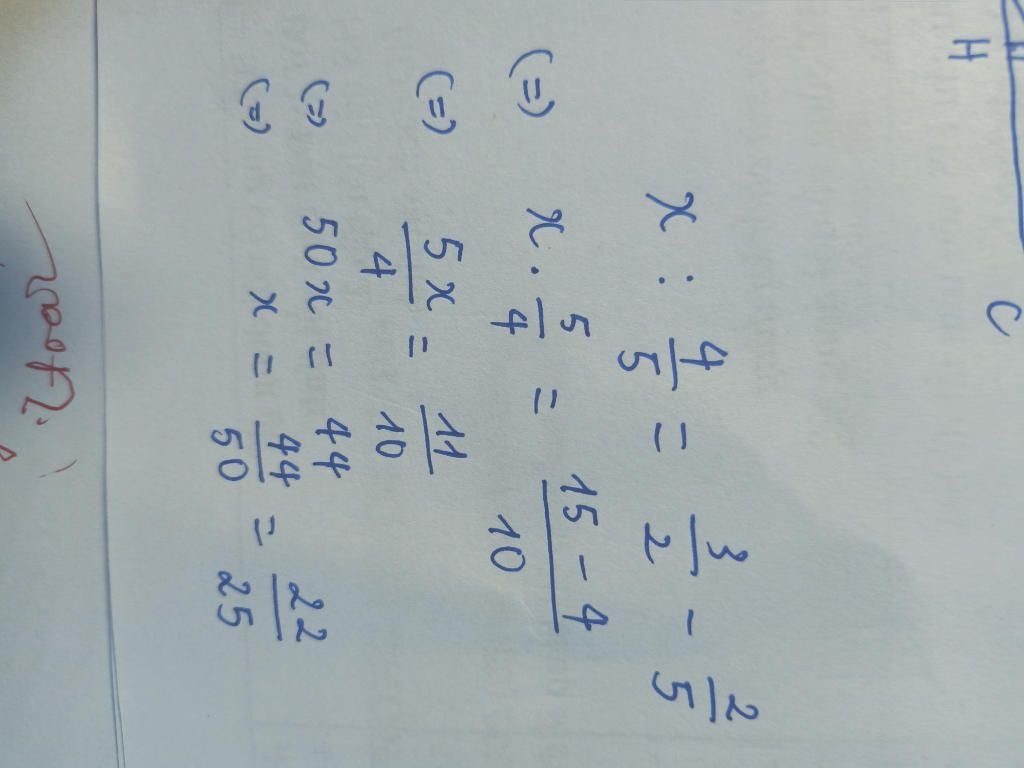 H
C
x : 4/5 = 3/2 - 2/5
(=) x . 5/4 = (15 - 4)/10
(=) 5x/4 = 11/10
(=) 50x = 44
(=) x = 44/50 = 22/25